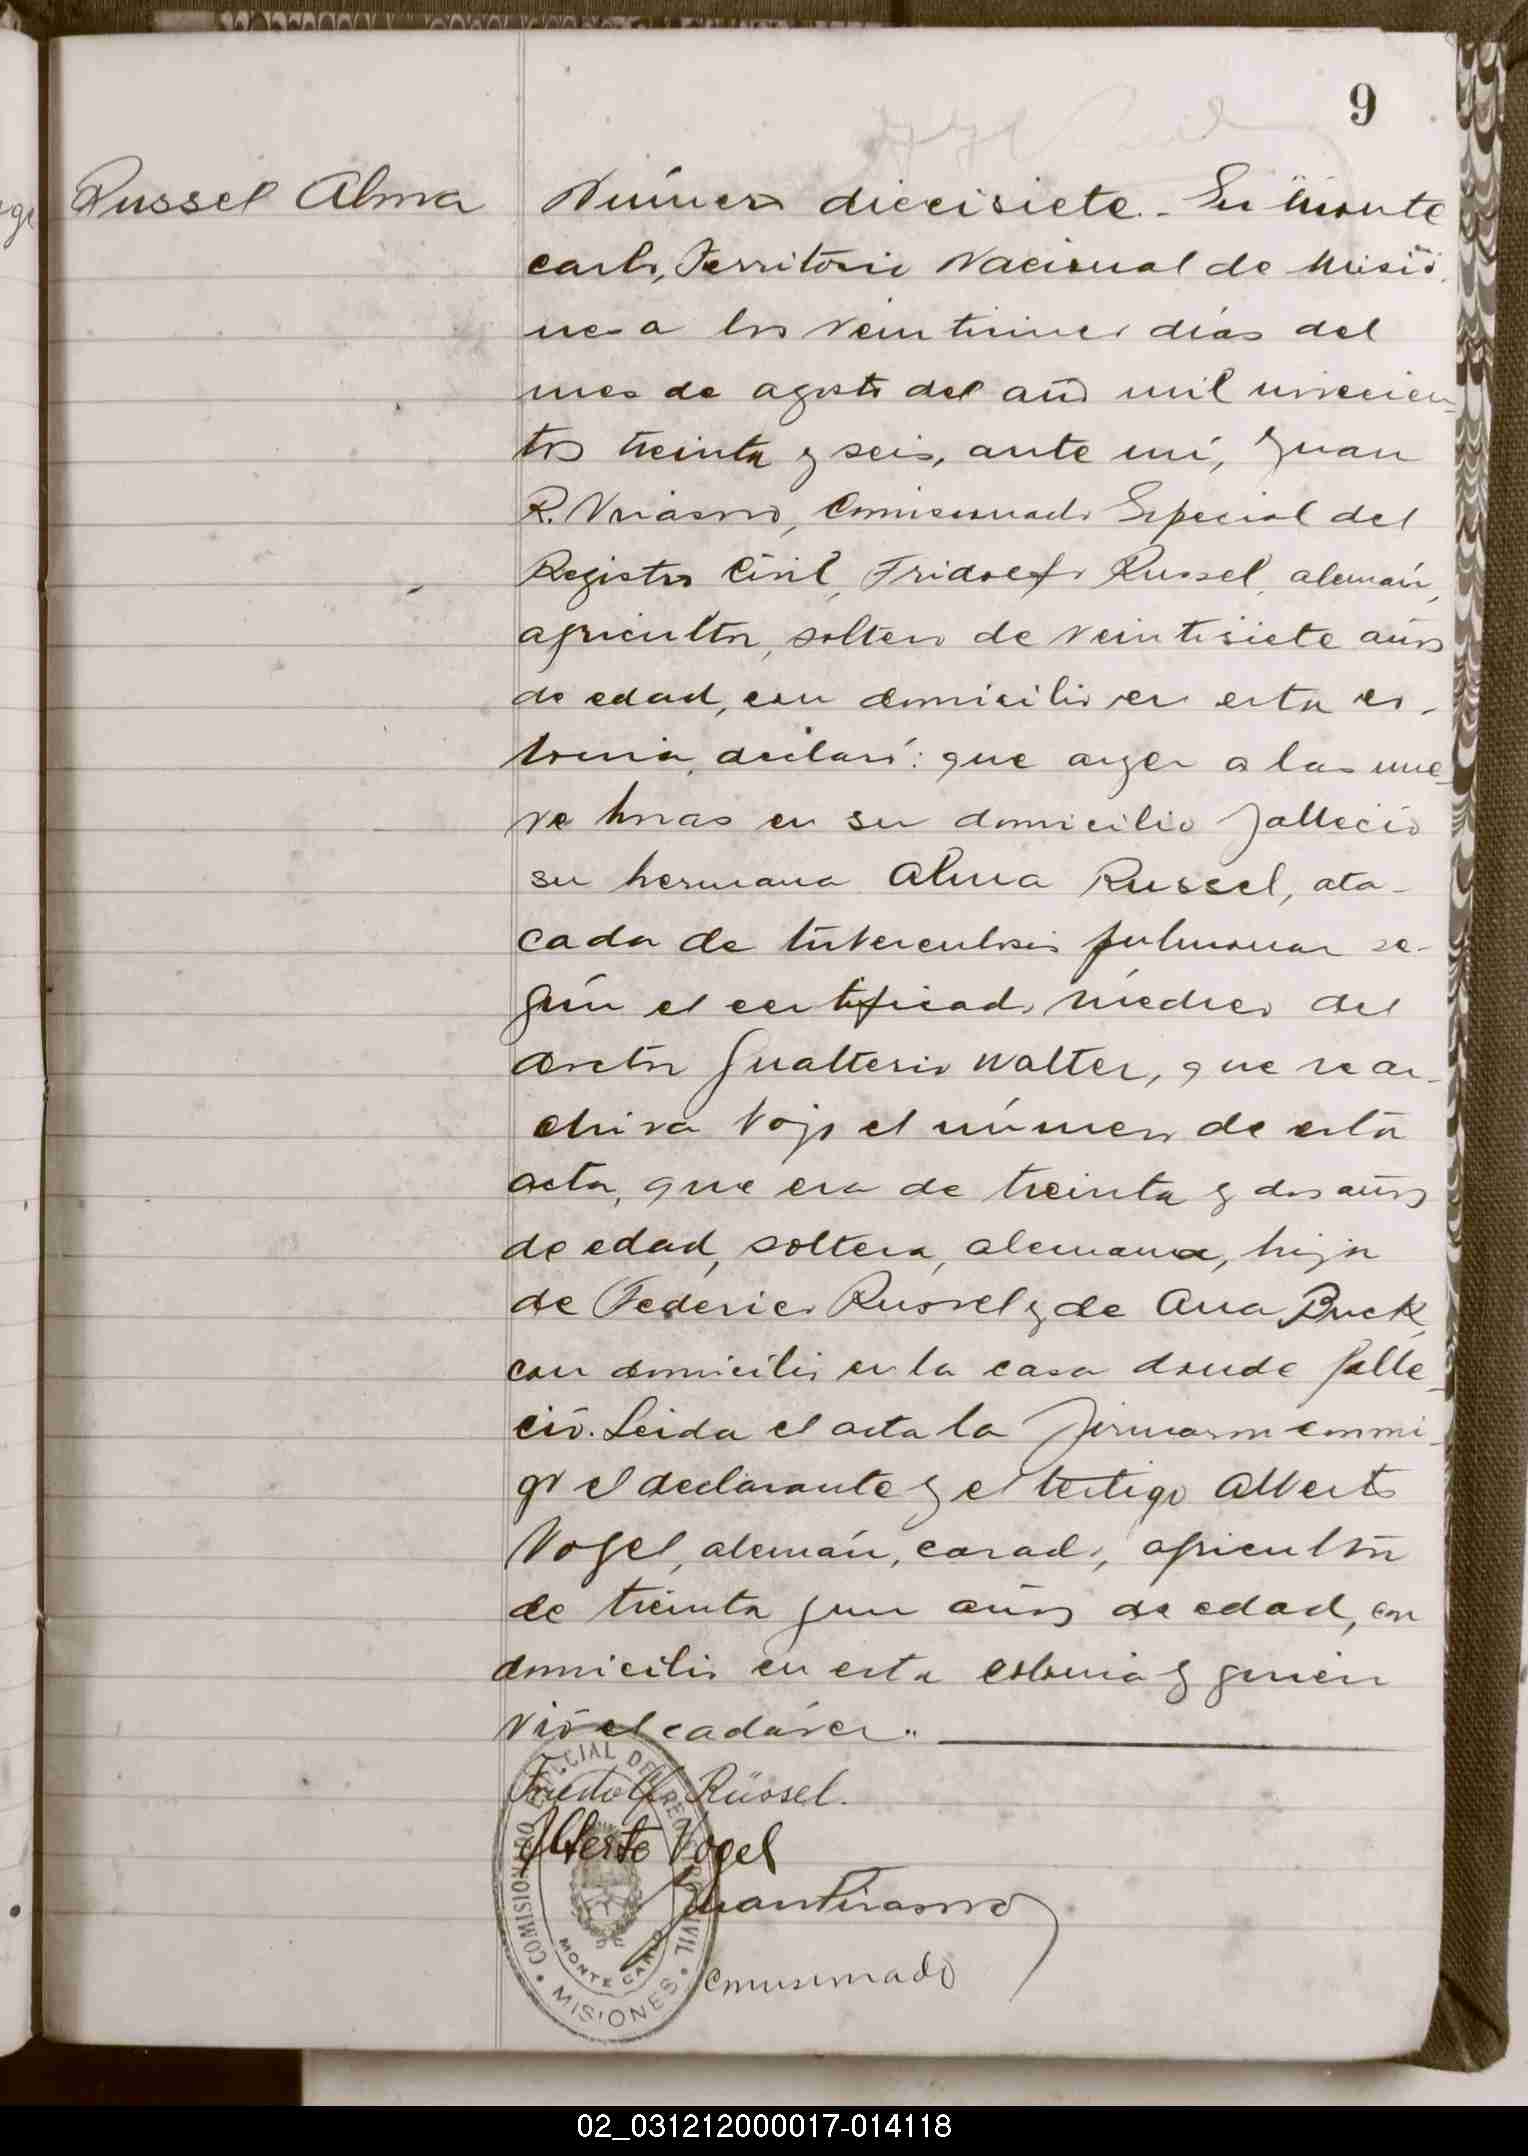 9
Russel Alma
Número diecisiete.- En Monte
carlo, Territorio Nacional de Misio
nes a los veintinueve días del
mes de agosto del año mil novecien-
tos treinta y seis, ante mí, Juan
R. Viriasoro, Comisionado Especial del
Registro Civil, Fridolfo Russel, alemán,
agricultor, soltero de veintisiete años
de edad, con domicilio en esta co-
lonia, declaró: que ayer a las nue-
ve horas en su domicilio falleció
su hermana Alma Russel, ata-
cada de tuberculosis pulmonar se-
gún el certificado médico del
doctor Gualterio Walter, que se ar-
chiva bajo el número de esta
acta, que era de treinta y dos años
de edad, soltera, alemana, hija
de Federico Russel y de Ana Buck,
con domicilio en la casa donde falle-
ció. Leida el acta la firmaron conmi-
go el declarante y el testigo Alberto
Vogel, alemán, casado, agricultor
de treinta y un años de edad, con
domicilio en esta colonia y quien
vió el cadáver.
Fridolf Rüssel.
Alberto Vogel
Comisionado
COMISIONADO ESPECIAL DEL REGISTRO CIVIL
MONTE CARLO
MISIONES
02_031212000017-014118